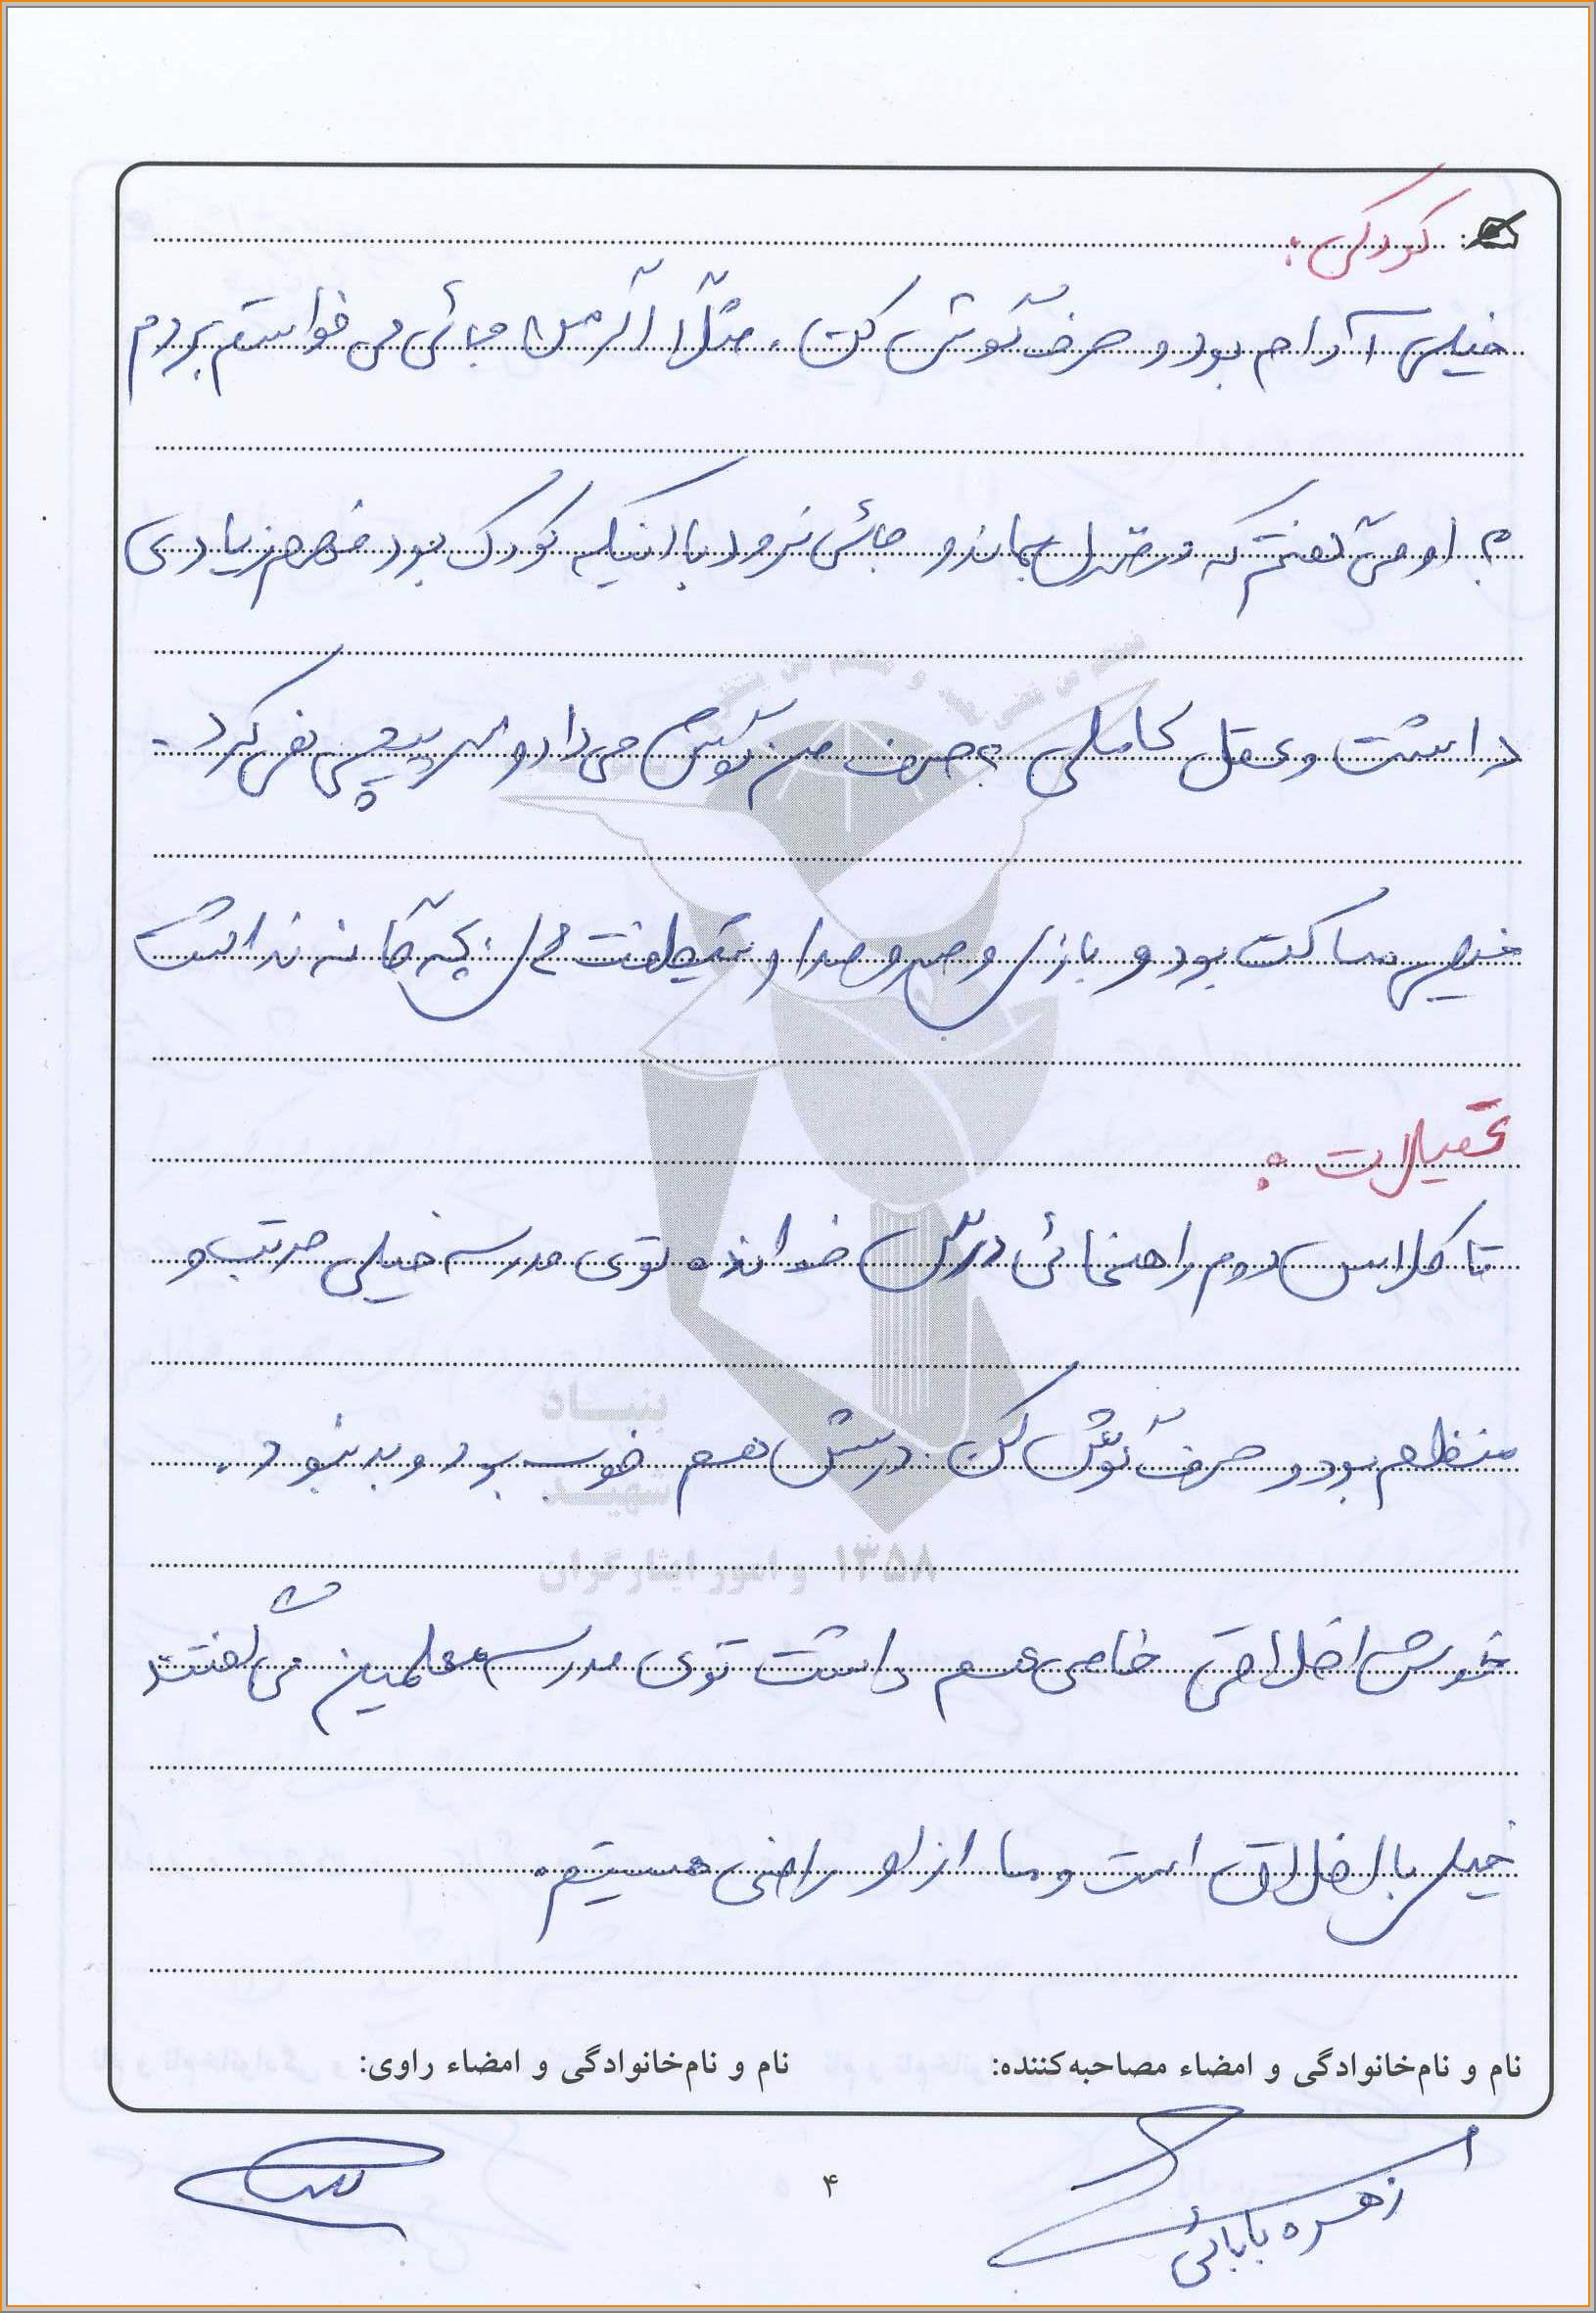 کودکی:
خیلی آرام بود و حرف گوش کن، مثلاً اگر من جائی می خواستم بروم
به او می گفتم که در منزل بماند و جائی نرود با اینکه کودک بود فهم زیادی
داشت و عقل کاملی و حرف من گوش می داد و سرپیچی نمی کرد.
خیلی ساکت بود و بازی و سر و صدا و شیطنت های بچه گانه نداشت
تحصیلات:
تا کلاس دوم راهنمائی درس خوانده توی مدرسه خیلی مرتب و
منظم بود و حرف گوش کن. درسش هم خوب بود و بد نبود.
خوش اخلاقی خاصی هم داشت توی مدرسه معلمینش می گفتند
خیلی با اخلاق است و ما از او راضی هستیم.
بنیاد
شهید
و امور ایثارگران ۱۳۵۸
نام و نام‌خانوادگی و امضاء مصاحبه‌کننده: نام و نام‌خانوادگی و امضاء راوی:
زهره بابائی
۴